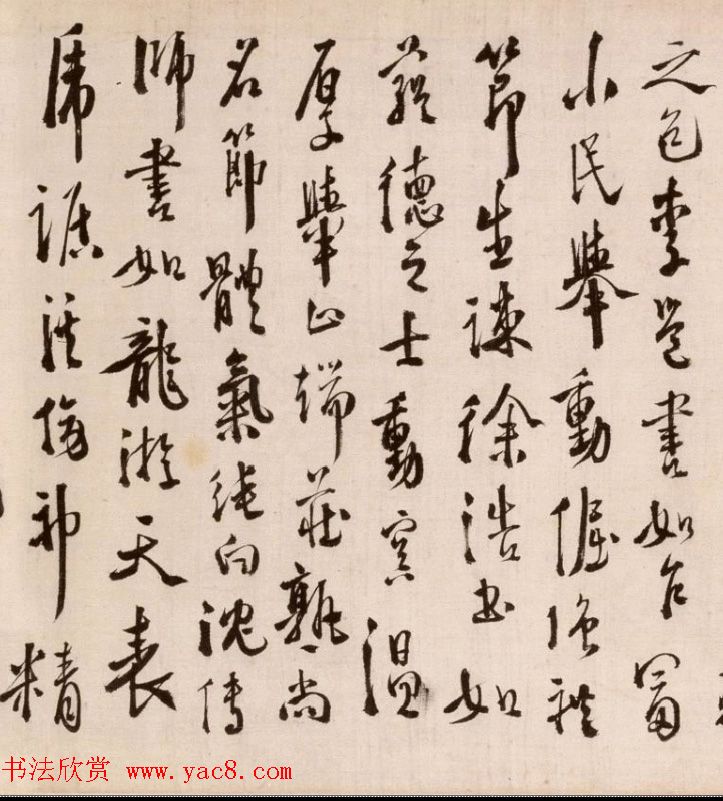 之色李邕書如乍富
小民舉動倔强禮
節生疎徐浩書如
藴德之士動容温
厚舉止端莊敦尚
名節體氣純白沈傳
師書如龍游天表
虎踞溪傍神精
书法欣赏 www.yac8.com